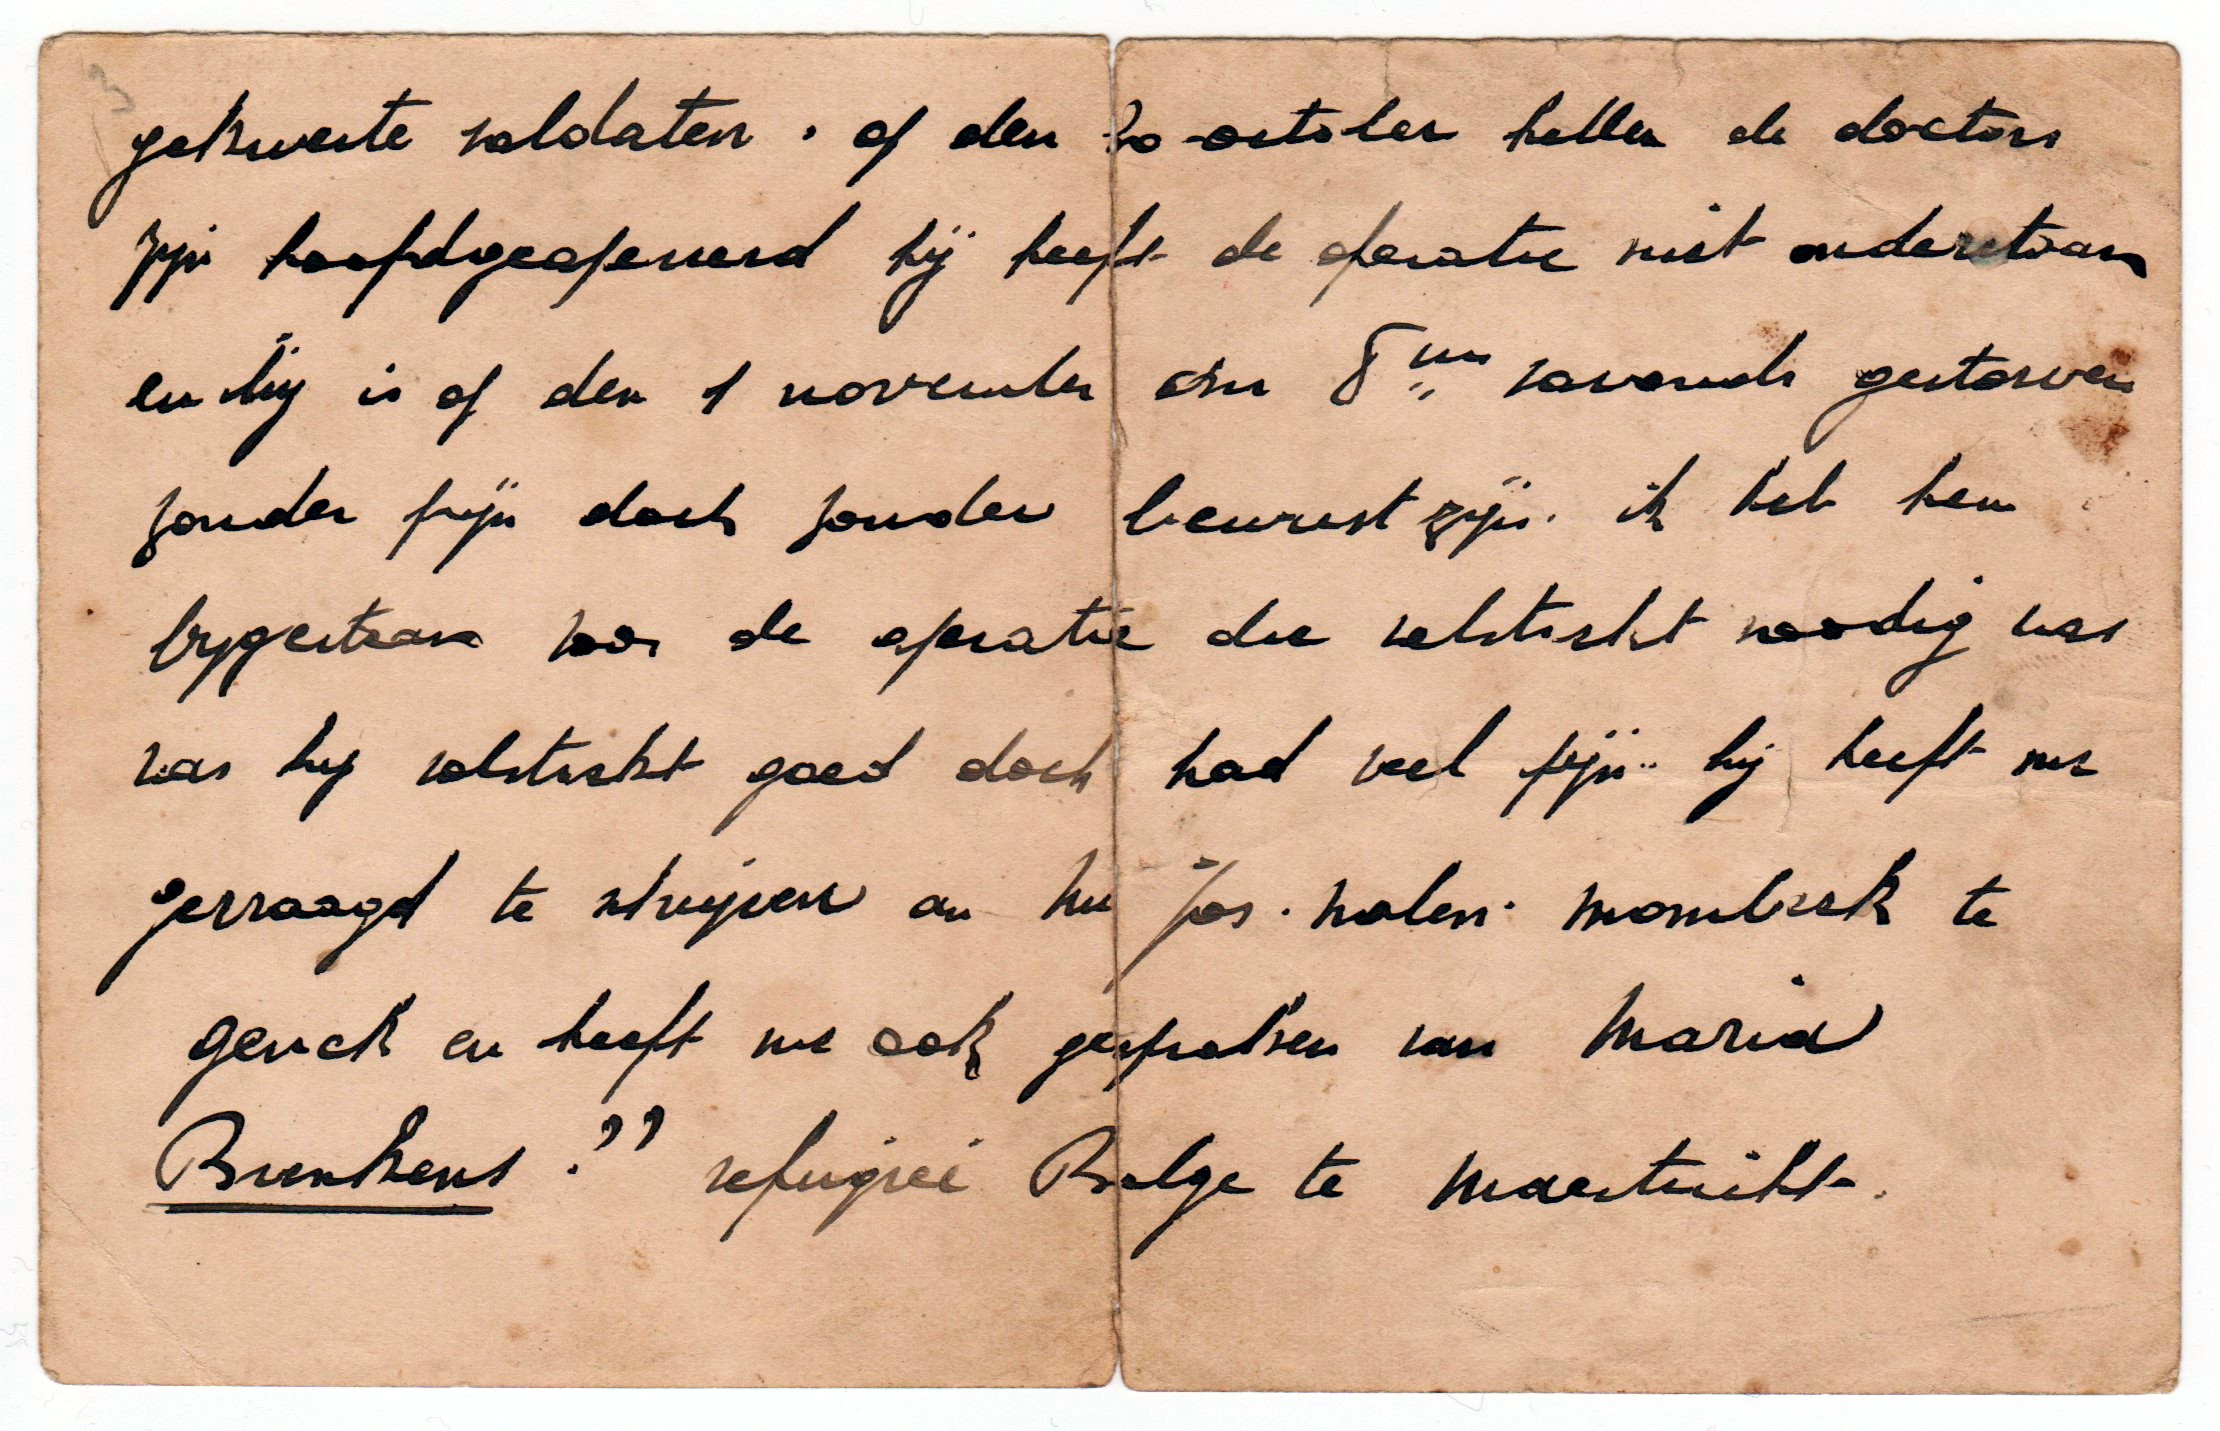 gekweste soldaten. op den 30 october hebben de doctors
zijn hoofdgeopereerd hij heeft de operatie niet onderstaan
en hij is op den 1 november om 8 uu savonds gestorven
zonder pijn doch zonder bewust zijn. ik heb hem
bygestaan voor de operatie die volstrekt noodig was
was hij volstrekt goed doch had veel pijn.. hij heeft me
gevraagd te schrijven an Mr Jos. Molen. Mombeek te
genck en heeft me ook gesproken van Maria
Brenkens ?? refugiée Belge te Maestricht.